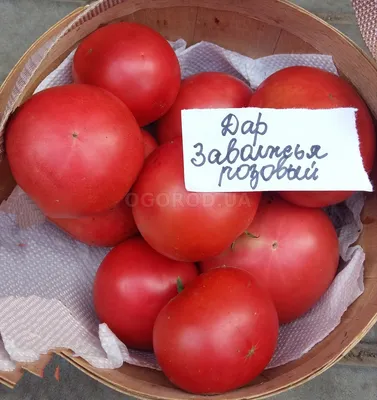 Дар
Заволжья
розовый
OGOROD.UA